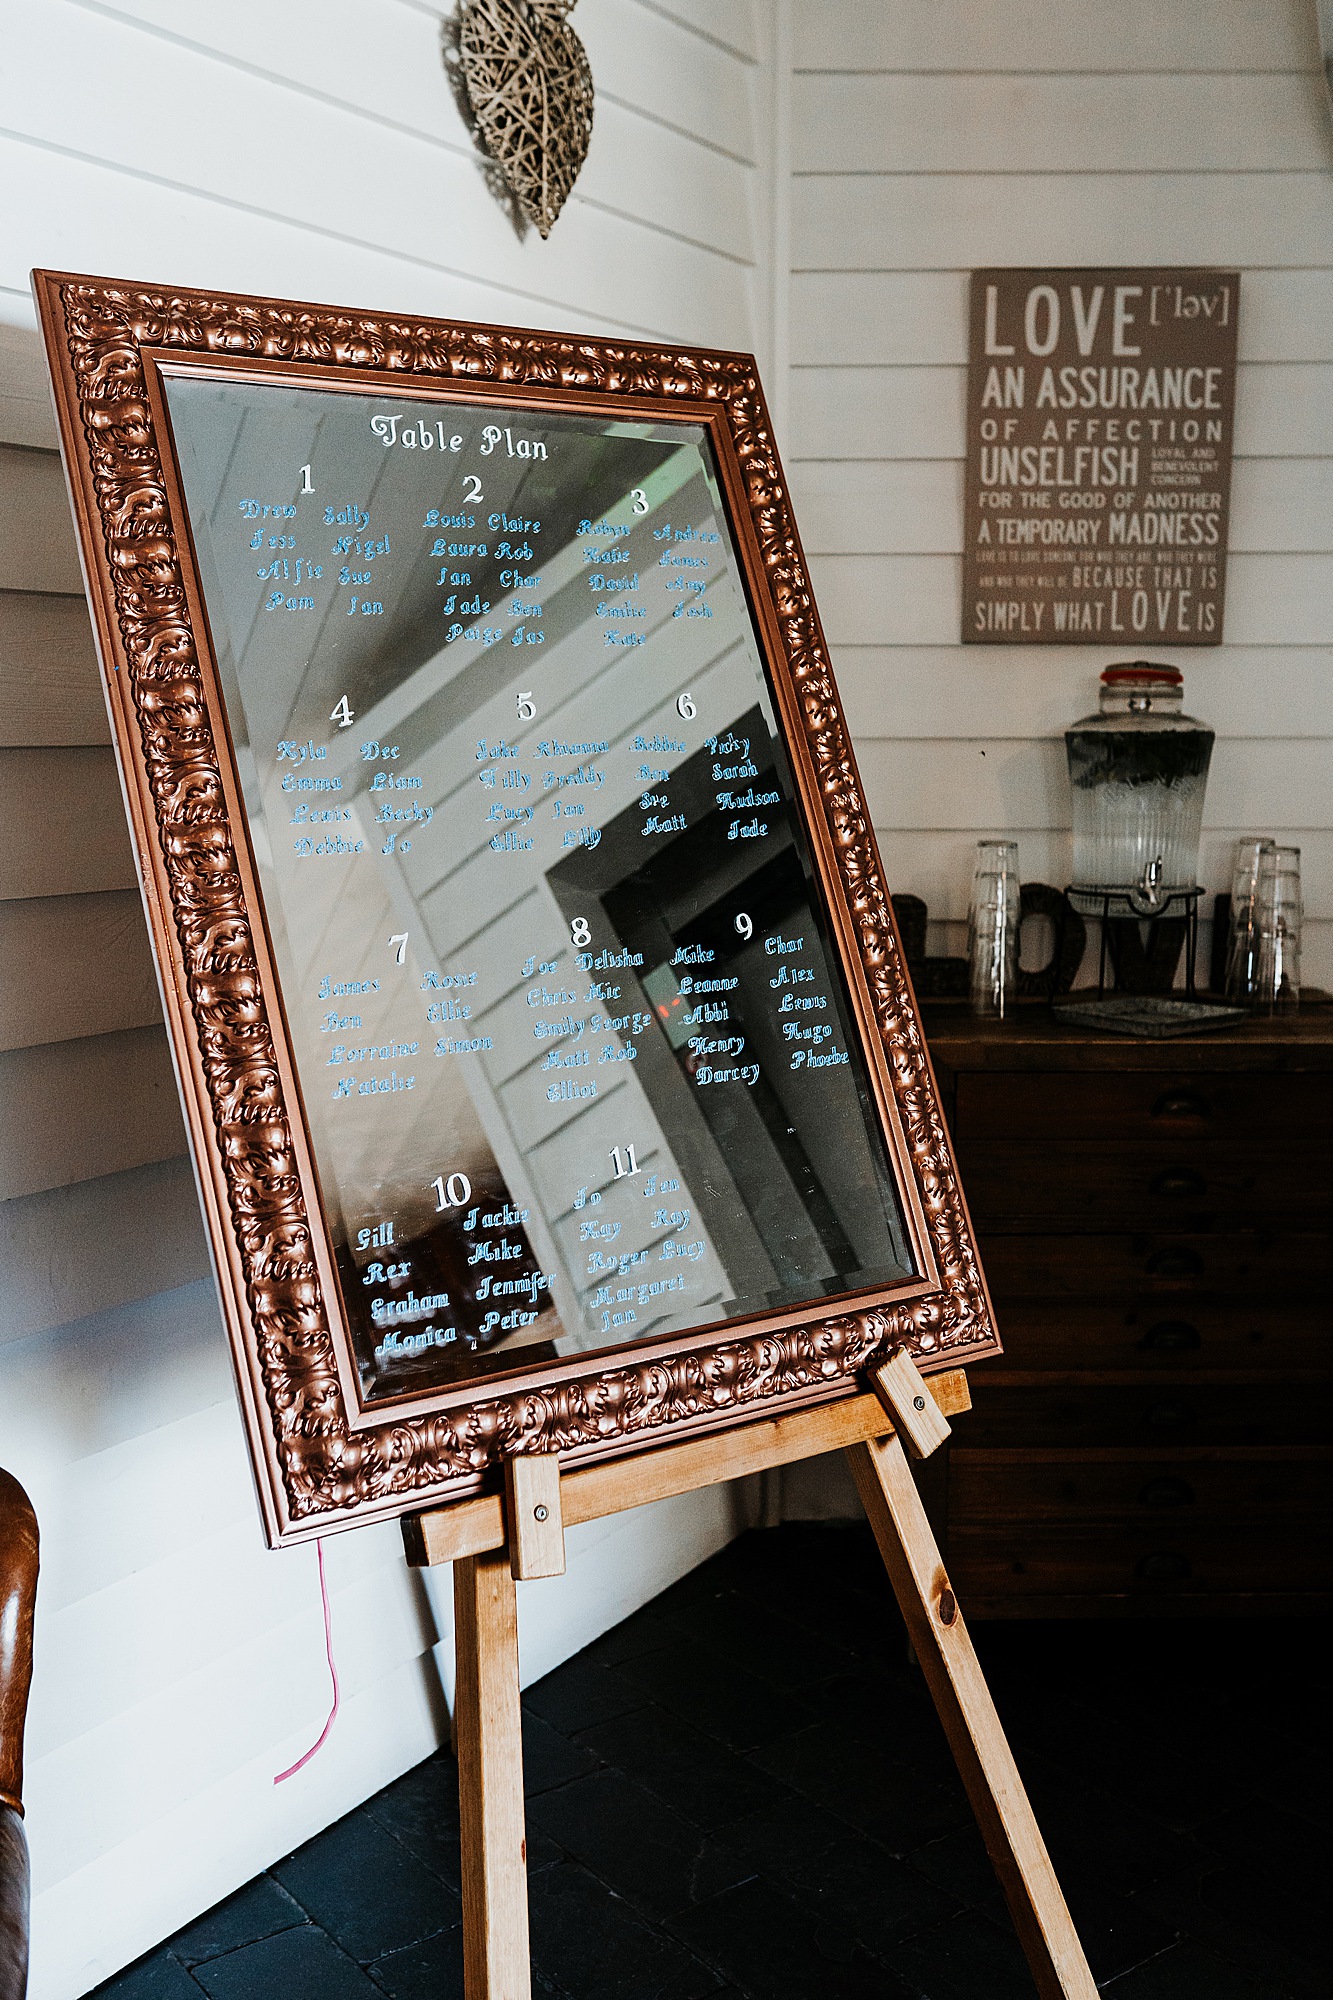 Table Plan
1
Drew Sally
Jess Nigel
Alfie Sue
Pam Ian
2
Louis Claire
Laura Rob
Ian Char
Jade Ben
Paige Jas
3
Robyn Andrew
Katie James
David Amy
Emlie Josh
Kate
4
Kyla Dec
Emma Liam
Lewis Becky
Debbie Jo
5
Jake Rhianna
Tilly Freddy
Lucy Ian
Ellie Elly
6
Debbie Vicky
Ben Sarah
Sve Hudson
Matt Jade
7
James Rosie
Ben Ellie
Lorraine Simon
Natalie
8
Joe Delisha
Chris Mic
Emily George
Matt Rob
Elliot
9
Mike Char
Leanne Alex
Abbi Lewis
Henry Hugo
Darcey Phoebe
10
Gill Jackie
Rex Mike
Graham Jennifer
Monica Peter
11
Jo Jen
Kay Ray
Roger Lucy
Margaret
Ian
LOVE ['ləv]
AN ASSURANCE
OF AFFECTION
UNSELFISH LOYAL AND BENEVOLENT CONCERN
FOR THE GOOD OF ANOTHER
A TEMPORARY MADNESS
BECAUSE THAT IS
SIMPLY WHAT LOVE IS